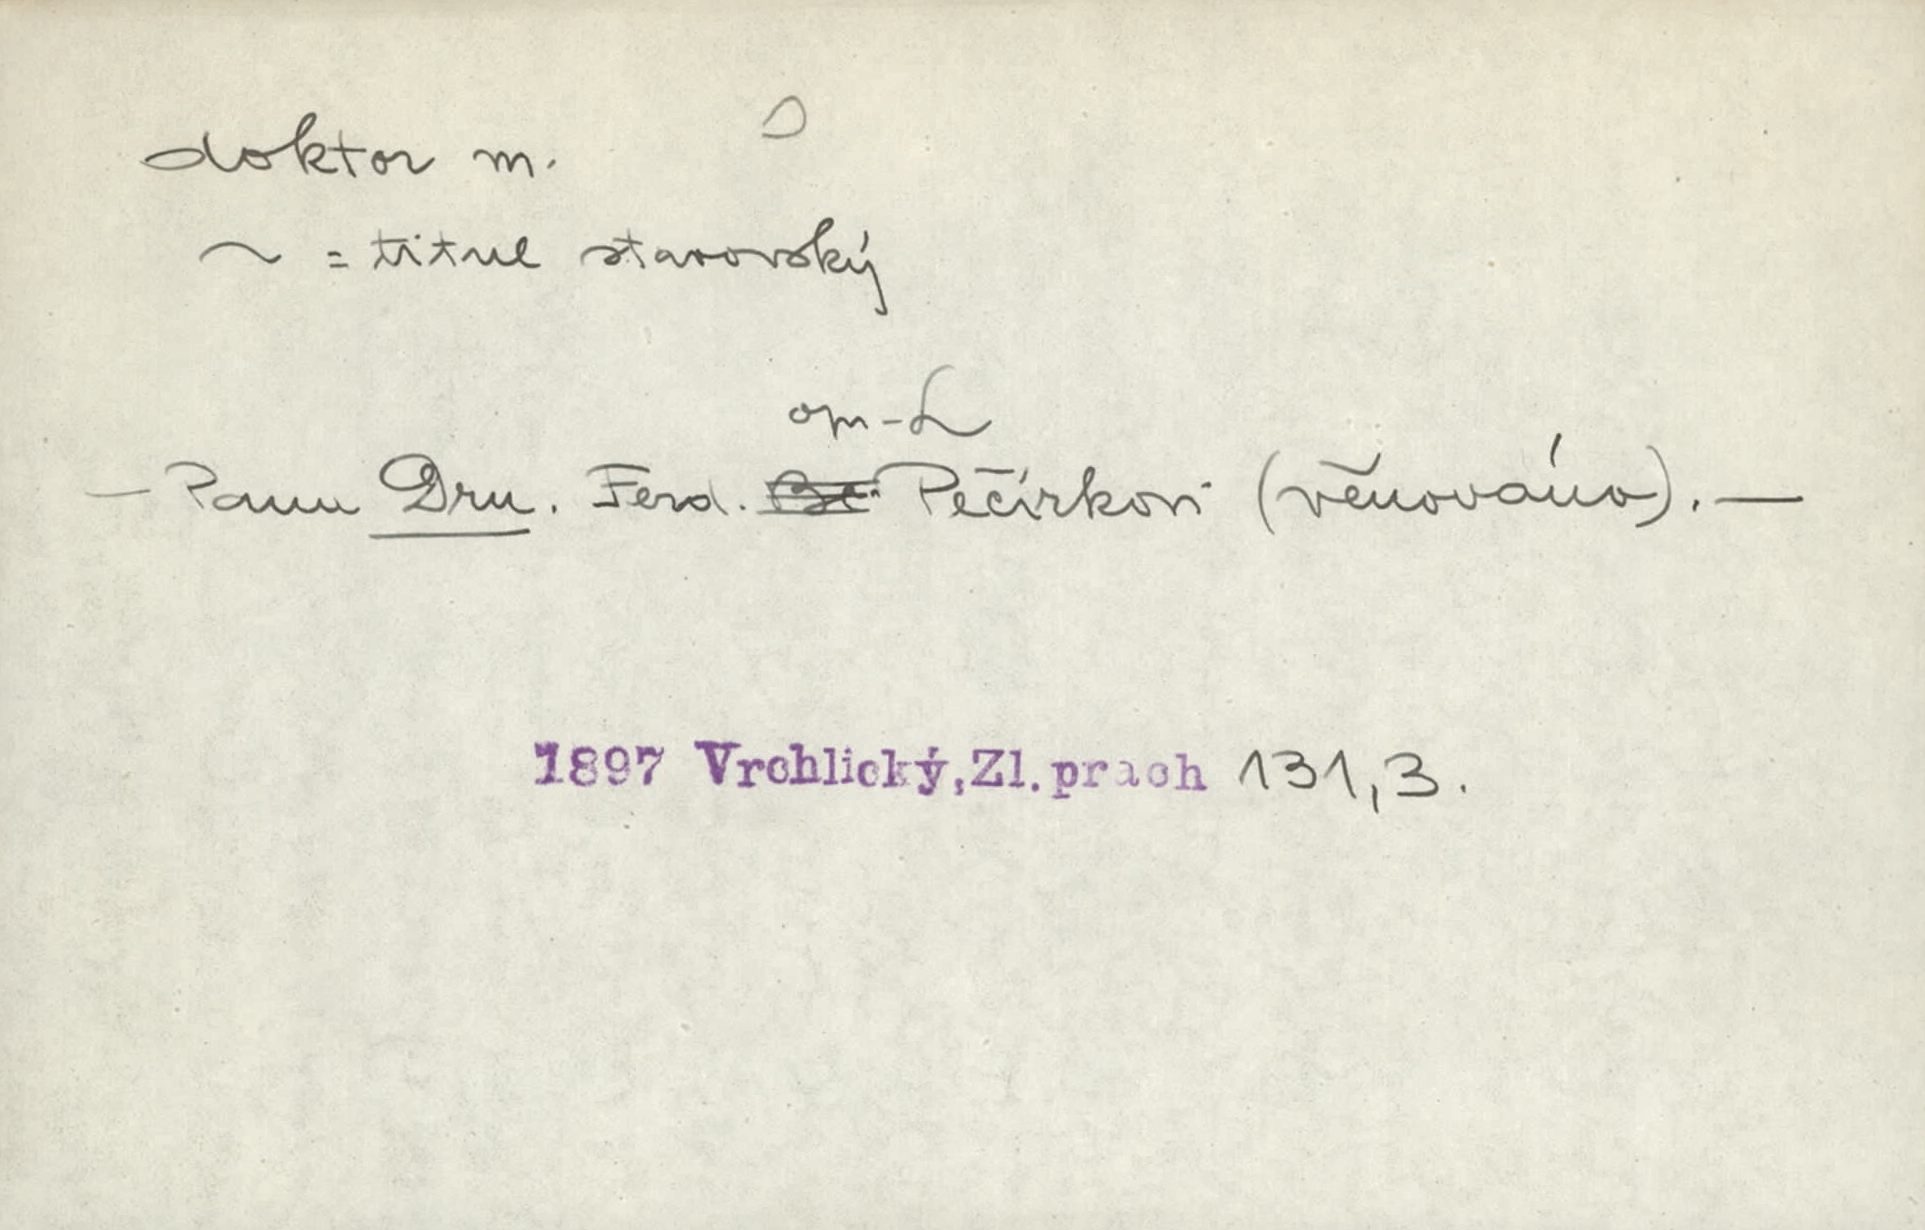 doktor m.
~ = titul stavovský
om-L
— Panu Dru. Ferd. Pečírkovi (věnováno). —
1897 Vrchlický, Zl. prach 131,3.